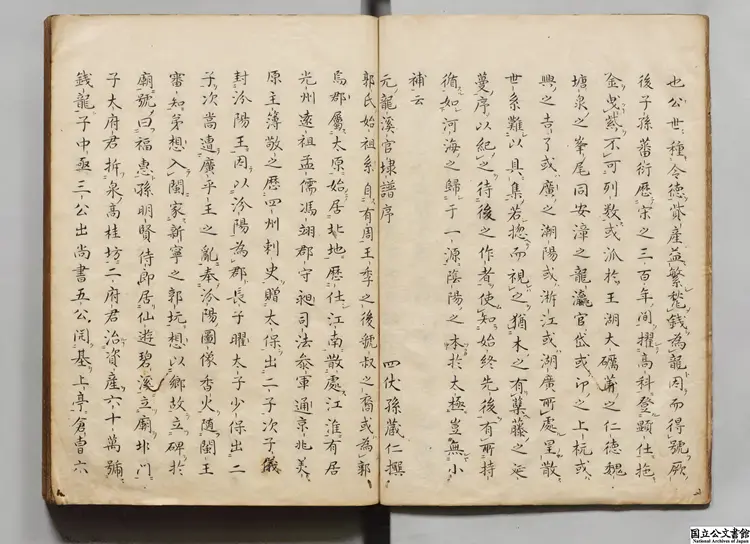 也公世種令德貲產益繁毿錢為龍因而得號厥
後子孫蕃衍歷宋之三百年間擢高科登顯仕拖
金曳紫不可列数或派於王湖大礪蒲之仁德魏
塘泉之峯尾同安漳之龍瀛官岱或卬之上杭或
興之吉了或廣之潮陽或浙江或湖廣所處星散
世系難以具集若揔而視之猶木之有蘖藤之延
蔓序以紀之待後之作者使知始終先後有所持
循如河海之歸于一源陰陽之本於太極豈無小
補云
元龍溪官埭譜序
四代孫蕆仁撰
郭氏始祖系自有周王季之後虢叔之裔或為郭
為郡屬太原始居北地歷仕江南散處江淮有居
光州遠祖孟儒馮翊郡守昶司法參軍通京兆美
原主簿敬之歷四州刺史贈太保出二子次子儀
封汾陽王因以汾陽為郡長子曜太子少保出二
子次嵩遭廣平王之亂奉汾陽圖像香火随閩王
審知弟想入閩家新寧之郭坑想以鄉故立碑於
廟號曰福惠孫明賢侍郎居仙遊碧溪立廟北門
子太府君折泉高桂坊二府君治資產六十萬號
錢龍子中亟三公出尚書五公開基上亭倉曹六
国立公文書館
National Archives of Japan